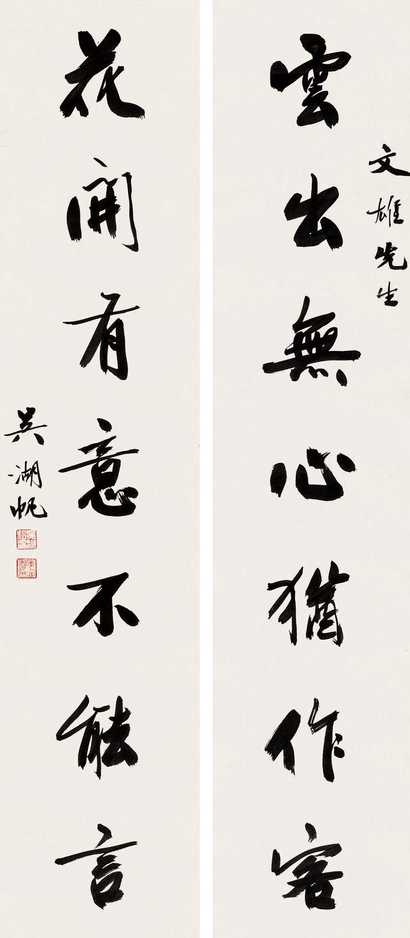 文雄先生
雲出無心猶作客
花開有意不能言
吳湖帆